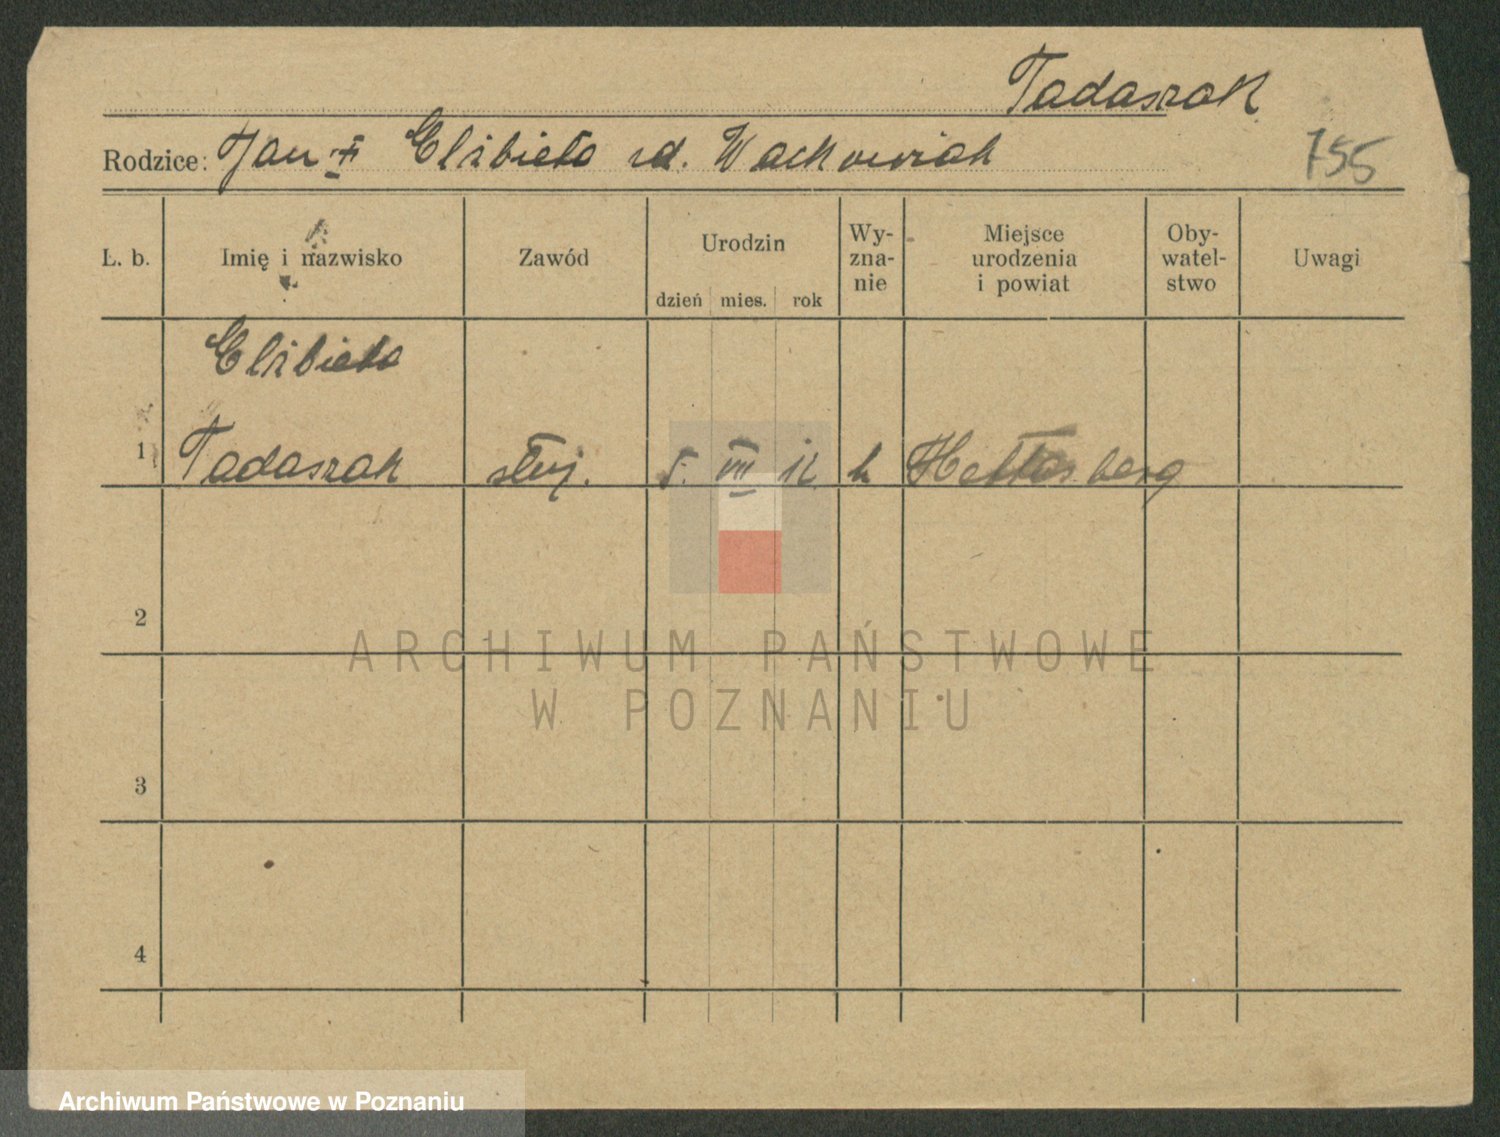 Tadaszak
Rodzice: Jan Elżbieta rd. Wachowiak
755
L. b. Imię i nazwisko Zawód Urodzin dzień mies. rok Wy-zna-nie Miejsce urodzenia i powiat Oby-watel-stwo Uwagi
Elżbieta
1 Tadaszak służ. 5. VII 12. k
2
ARCHIWUM PAŃSTWOWE
W POZNANIU
3
4
Archiwum Państwowe w Poznaniu